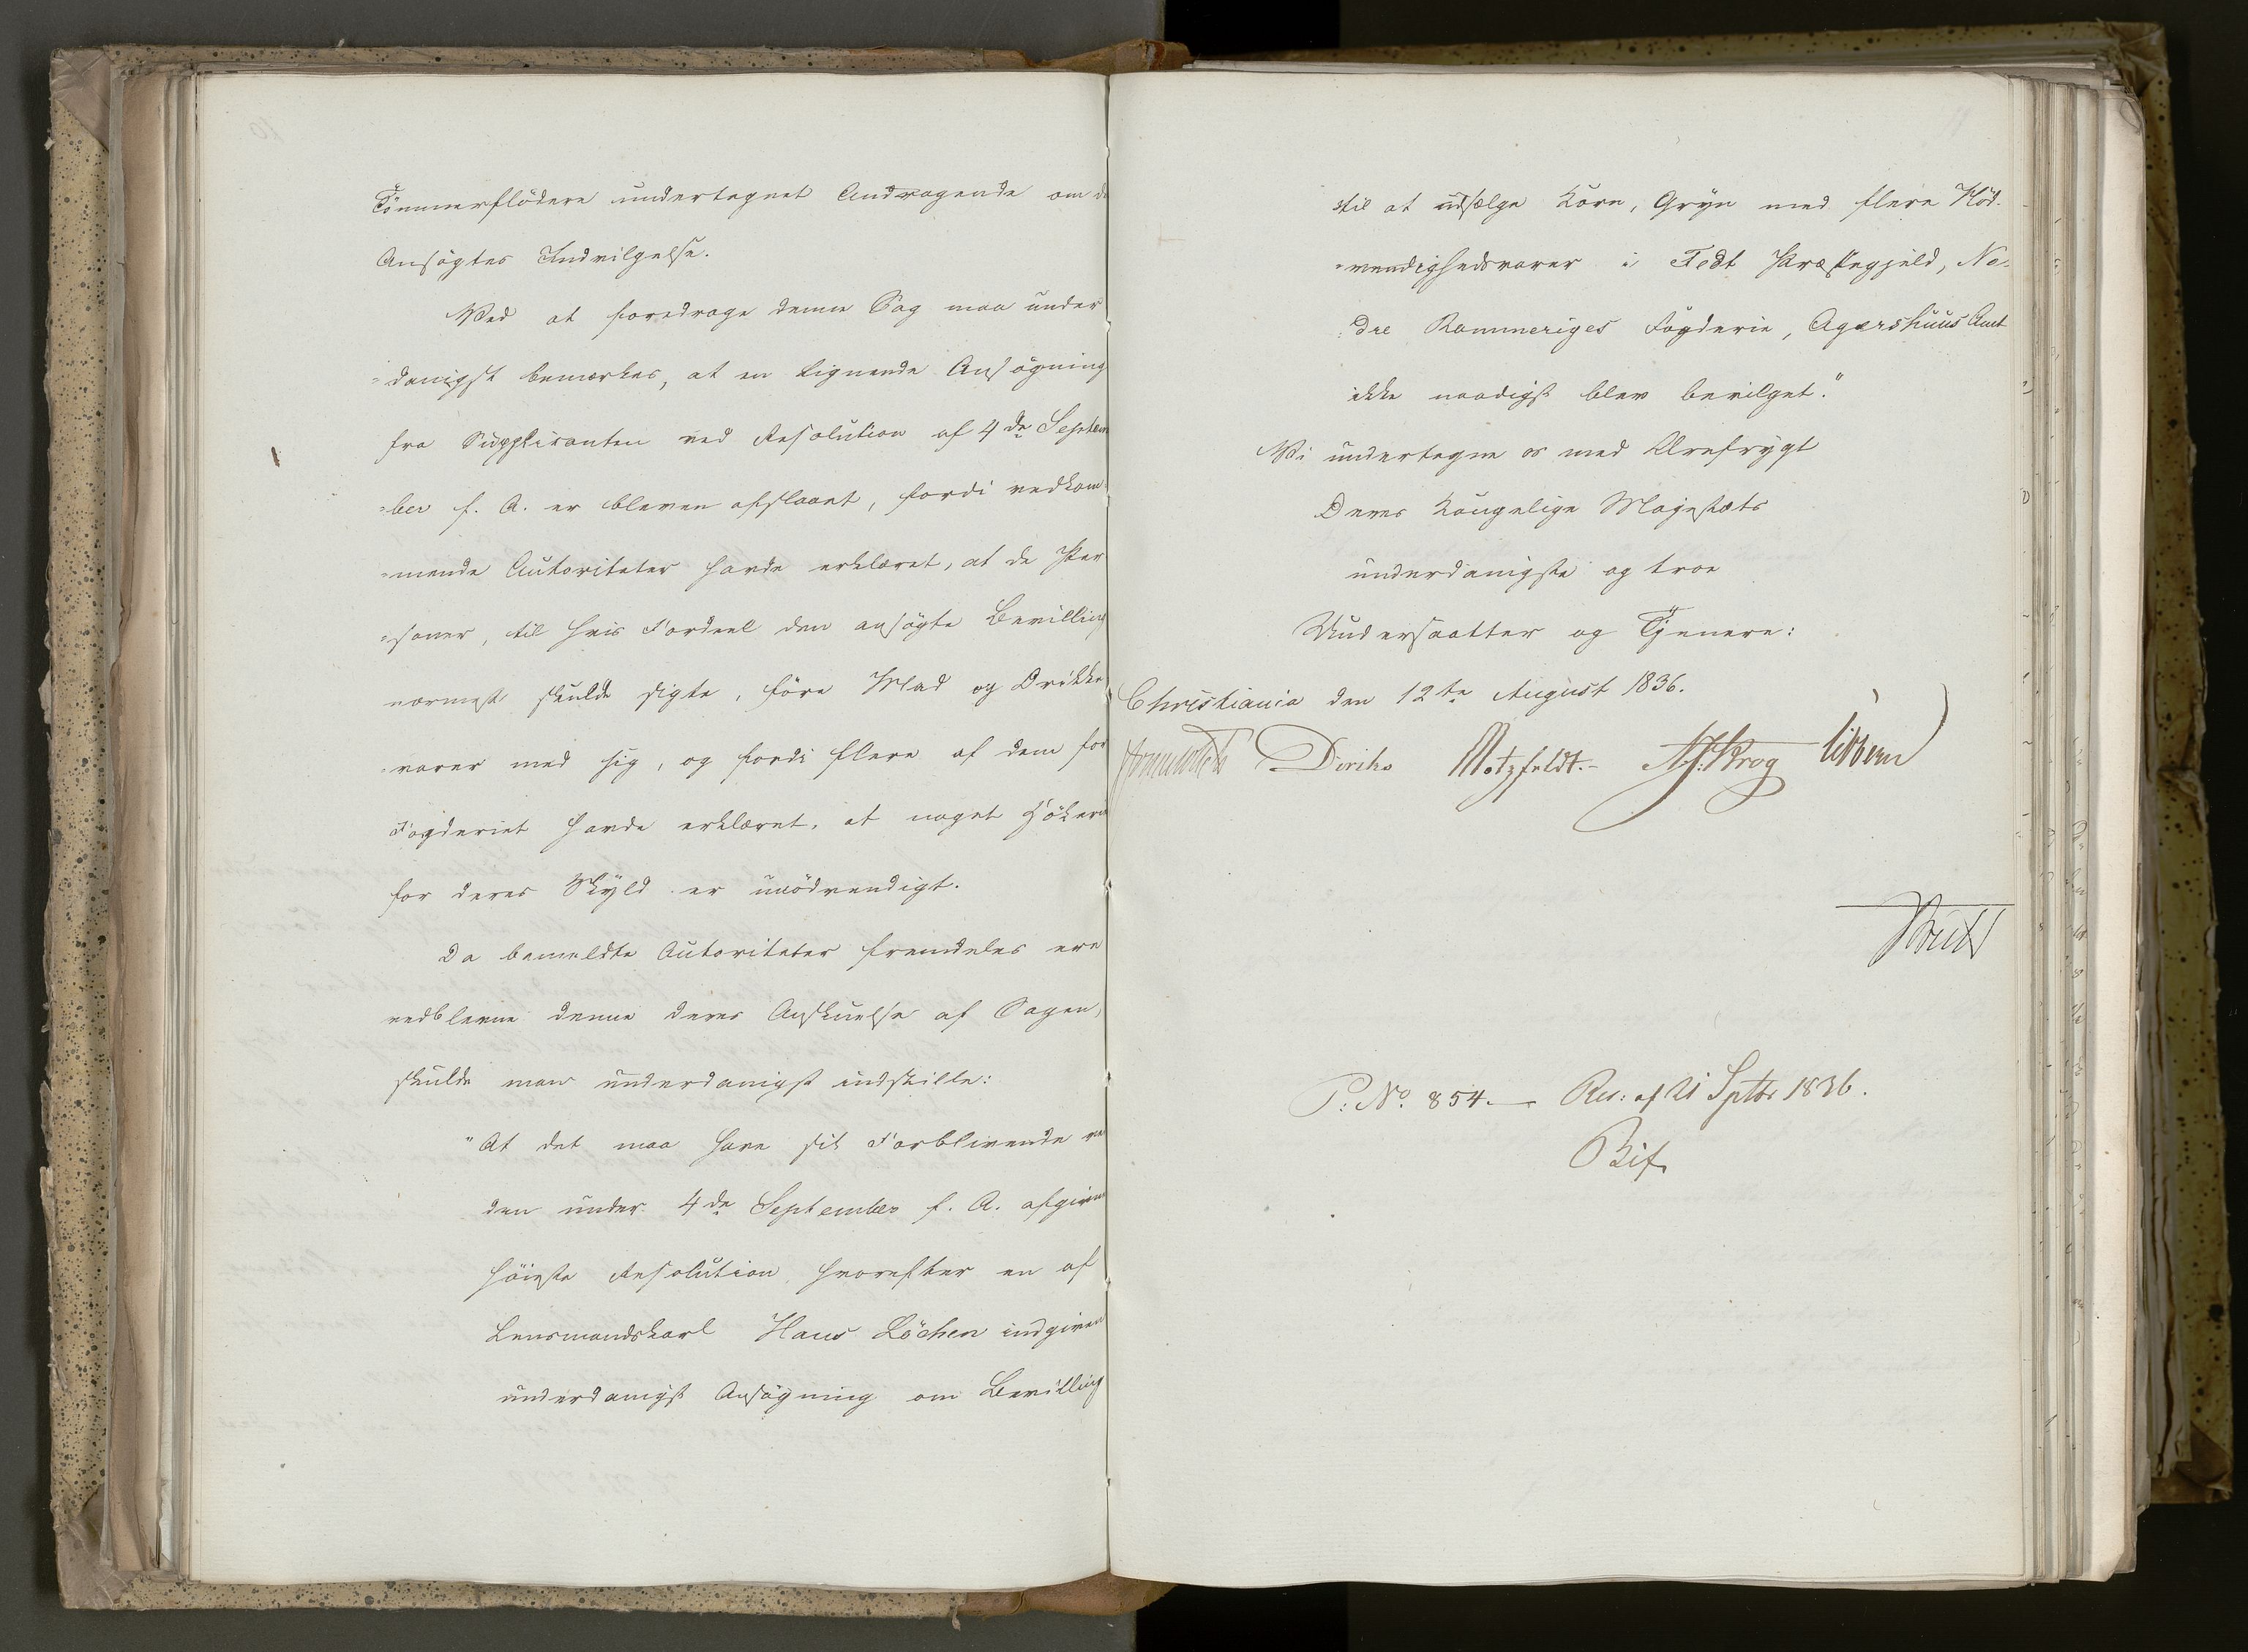 Tömmerflödere undertegnet Andragende om de
Ansøgtes Indvilgelse.
Ved at foredrage denne Sag maa under
=danigst bemærkes, at en lignende Ansøgning
fra Supplikanten ved Resolution af 4de Septem
=ber f. A. er bleven afslaaet, fordi vedkom
=mende Autoriteter havde erklæret, at de Per
=soner, til hvis Fordeel den ansøgte Bevilling
nærmest skulde sigte, føre Mad og Drikke
=varer med sig, og fordi flere af dem for
Fogderiet havde erklæret, at noget Høkerie
for deres Skyld er unödvendigt.
Da bemeldte Autoriteter fremdeles ere
vedblevne denne deres Anskuelse af Sagen,
skulde man underdanigst indstille:
"At det maa have sit Forblivende ved
den under 4de September f. A. afgivne
höieste Resolution, hvorefter en af
Lensmandskarl Hans Löchen indgiven
underdanigst Ansøgning om Bevilling
til at udsælge Korn, Gryn med flere Nöd-
=vendighedsvarer i Fedt Præstegjeld, Ne-
:dre Rommeriges Fogderie, Agershuus Amt
ikke naadigst blev bevilget."
Vi undertegne os med Ærefrygt
Deres Kongelige Majestæts
underdanigste og troe
Undersaatter og Tjenere:
Christiania den 12te August 1836.
Diriks Motzfeldt.- Krog
P: No. 854. — Res: af 21 Septbr 1836.
Bif.